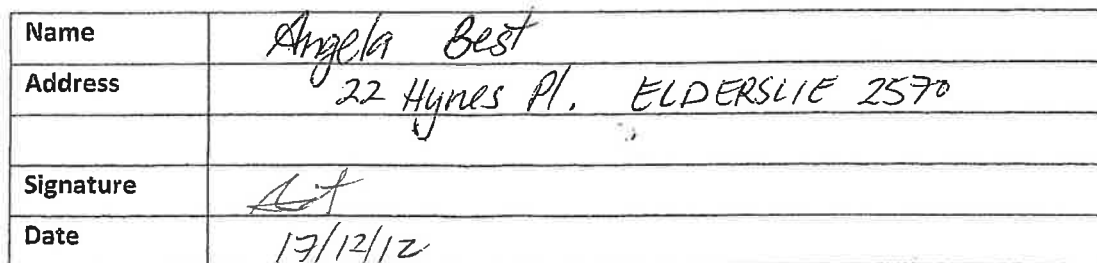 Name Angela Best
Address 22 Hynes Pl. ELDERSLIE 2570
Signature
Date 17/12/12